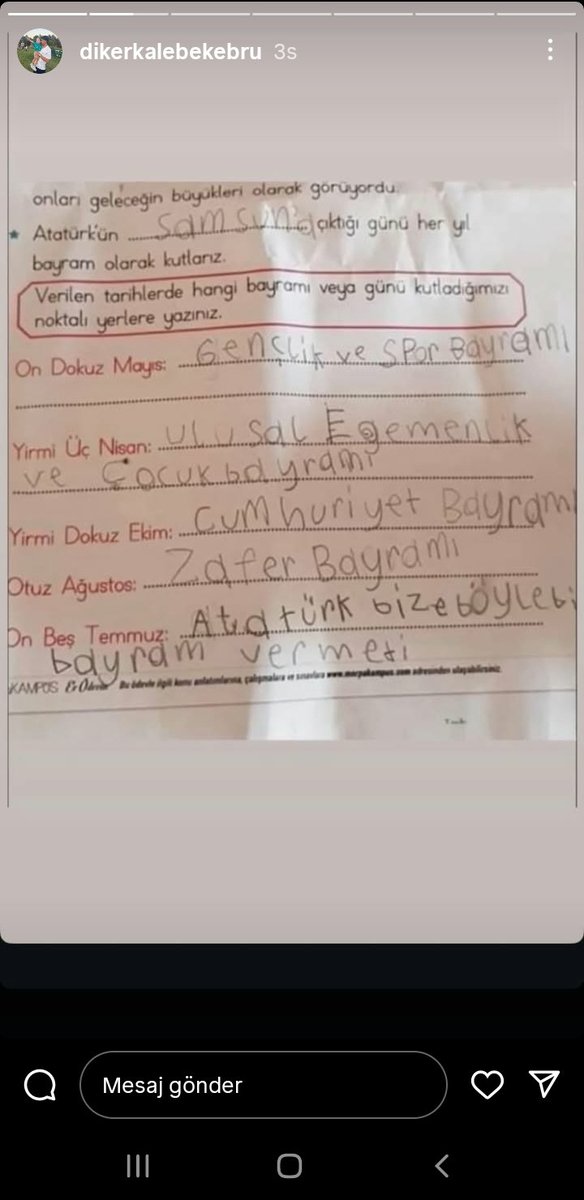 dikerkalebekebru 3s
onları geleceğin büyükleri olarak görüyordu.
★ Atatürk'ün samsun'a çıktığı günü her yıl
bayram olarak kutlarız.
Verilen tarihlerde hangi bayramı veya günü kutladığımızı
noktalı yerlere yazınız.
On Dokuz Mayıs: Gençlik ve SPor Bayramı
Yirmi Üç Nisan: Ulusal Egemenlik
ve Çocuk bayramı
Yirmi Dokuz Ekim: Cumhuriyet Bayramı
Otuz Ağustos: Zafer Bayramı
On Beş Temmuz: Atatürk bize böyle bi
bayram vermeti
KAMPÜS Ev Ödevim Bu ödevle ilgili konu anlatımlarına, çalışmalara ve sınavlara www.morpakampus.com adresinden ulaşabilirsiniz.
Mesaj gönder